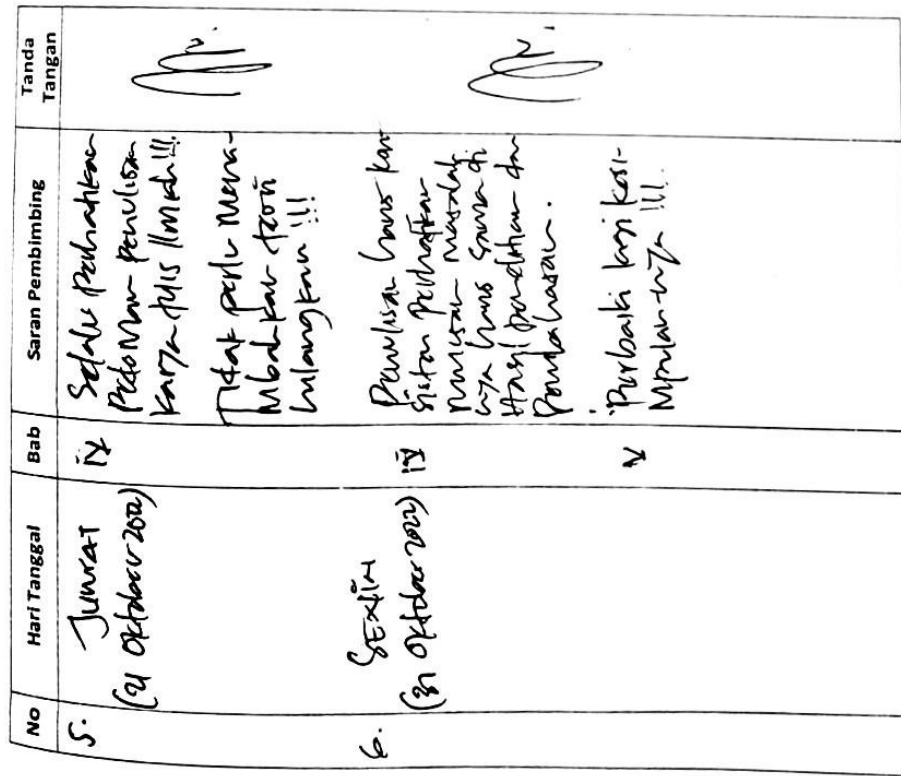 No
Hari Tanggal
Bab
Saran Pembimbing
Tanda
Tangan
5.
Jum'at
(21 Oktober 2022)
IV
Selalu perhatikan
Pedoman penulisan
karya tulis Ilmiah !!!
Tidak perlu mena-
mbahkan teori
!!!
6.
SENIN
(31 Oktober 2022)
IV
Penulisan harus kon
sisten perhatikan
rumusan masalah
nya harus sama di
Hasil penelitian dan
Pembahasan.
V
Perbaiki lagi kesi-
mpulan-nya !!!